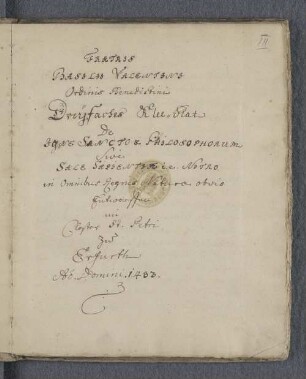 III
FRATRIS
BASILII VALENTINI
Ordinis Benedictini
Dreyfaches Klee-Blat
De
IGNE SANCTO & PHILOSOPHORUM
Sive
SALE SAPIENTIÆ NOSTRO
in Omnibus Regnis Natura obvio
Entworffen
im
Closter St. Petri
zu
Erfurth
Ao. Domini. 1433.